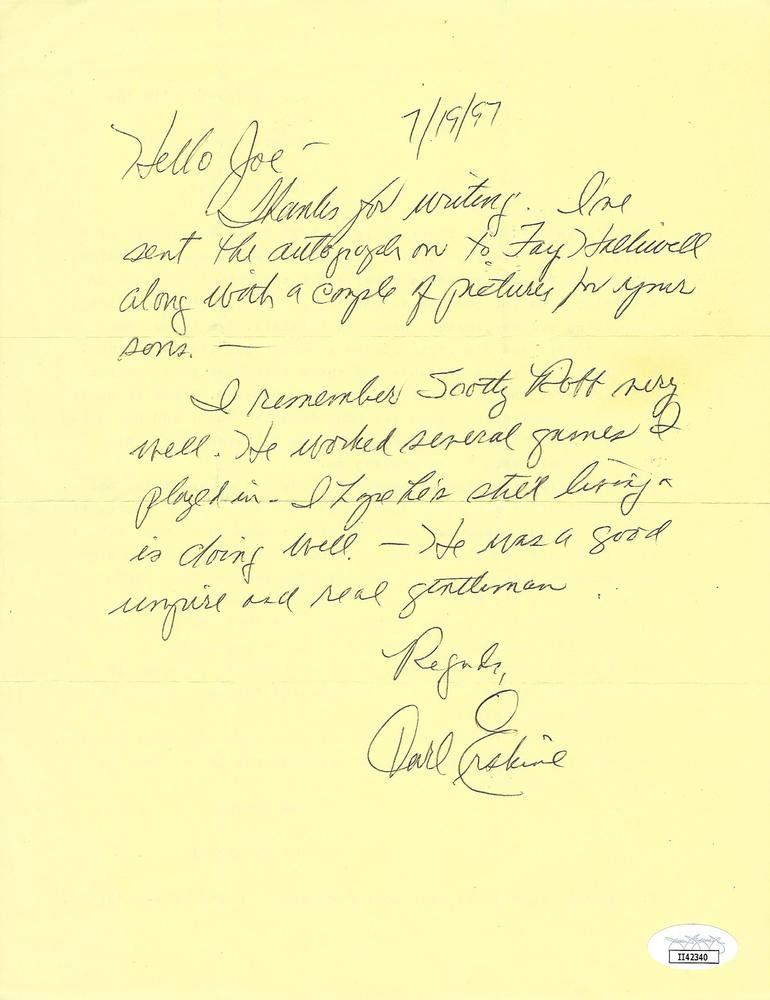 7/19/97
Hello Joe —
Thanks for writing. I've
sent the autograph on to Fay Halliwell
along with a couple of pictures for your
sons. —
I remember Scotty Robb very
well. He worked several games I
played in - I hope he's still living &
is doing well — He was a good
umpire and real gentleman.
Regards,
Carl Erskine
II42340